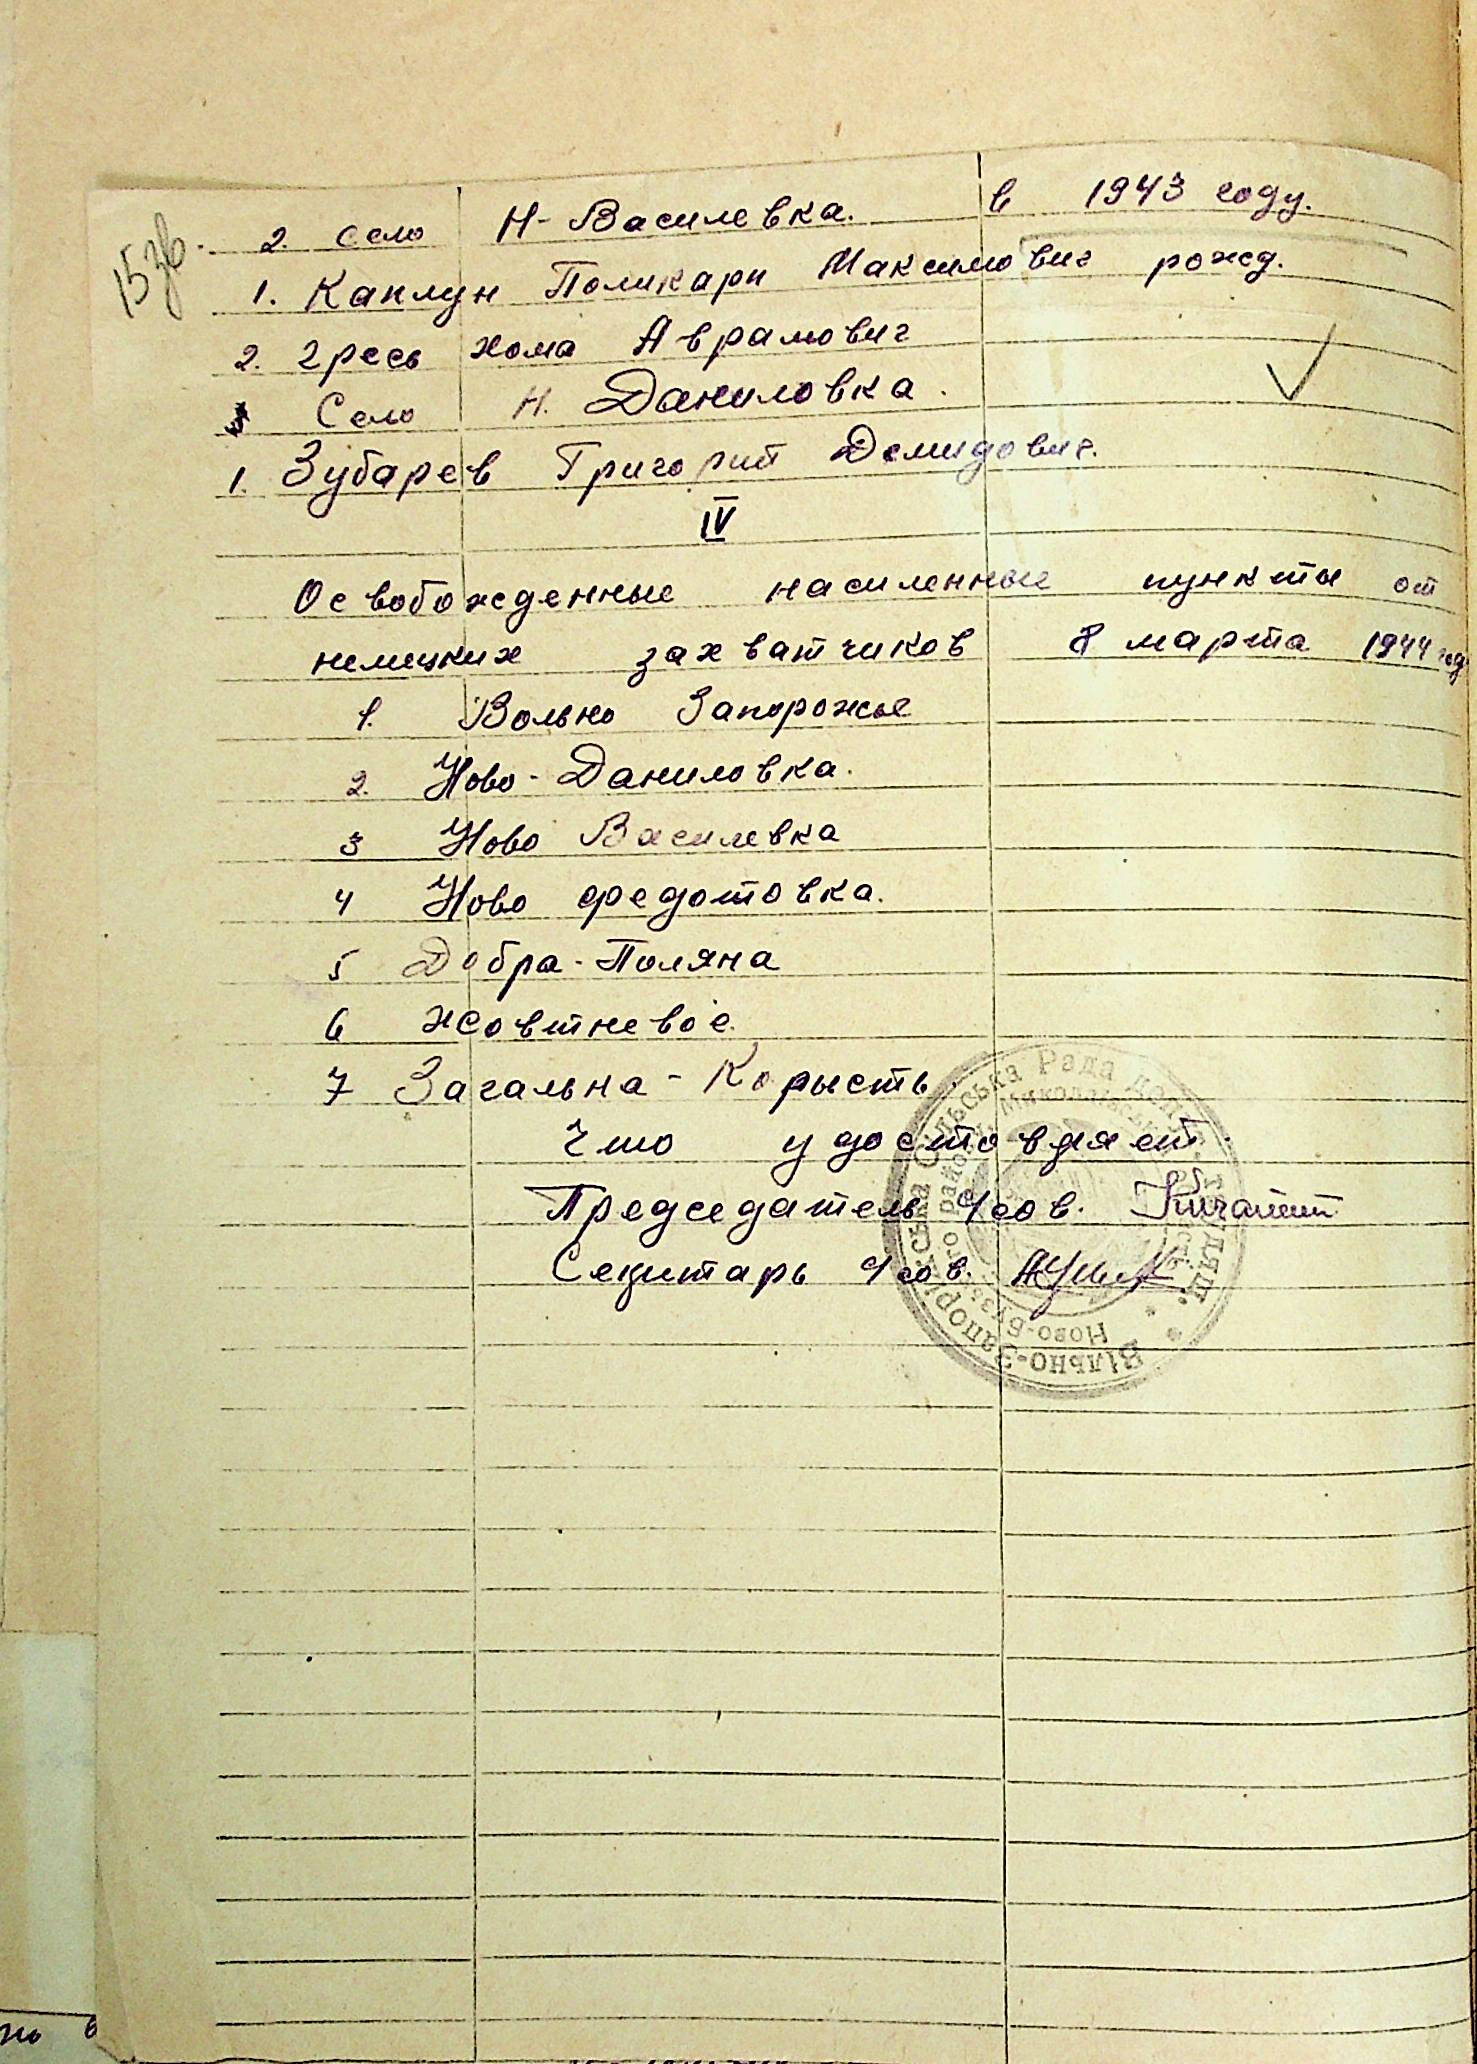 15 зв.
2. село Н-Василевка. в 1943 году.
1. Каплун Поликарп Максимович рожд.
2. гресь хома Аврамович
Село Н. Даниловка.
1. Зубарев Григорий Демидович.
IV
Освобожденные насиленные пункты от
немецких захватчиков 8 марта 1944 год
1. Вольно Запорожье
2. Ново-Даниловка.
3 Ново Василевка
4 Ново федотовка.
5 Добра-Поляна
6 жовтневое.
7 Загальна-Корысть.
Что удостовряет.
Председатель
Секитарь
Вільно-Запорізька Сільська Рада
Ново-Бузького району, Миколаївської